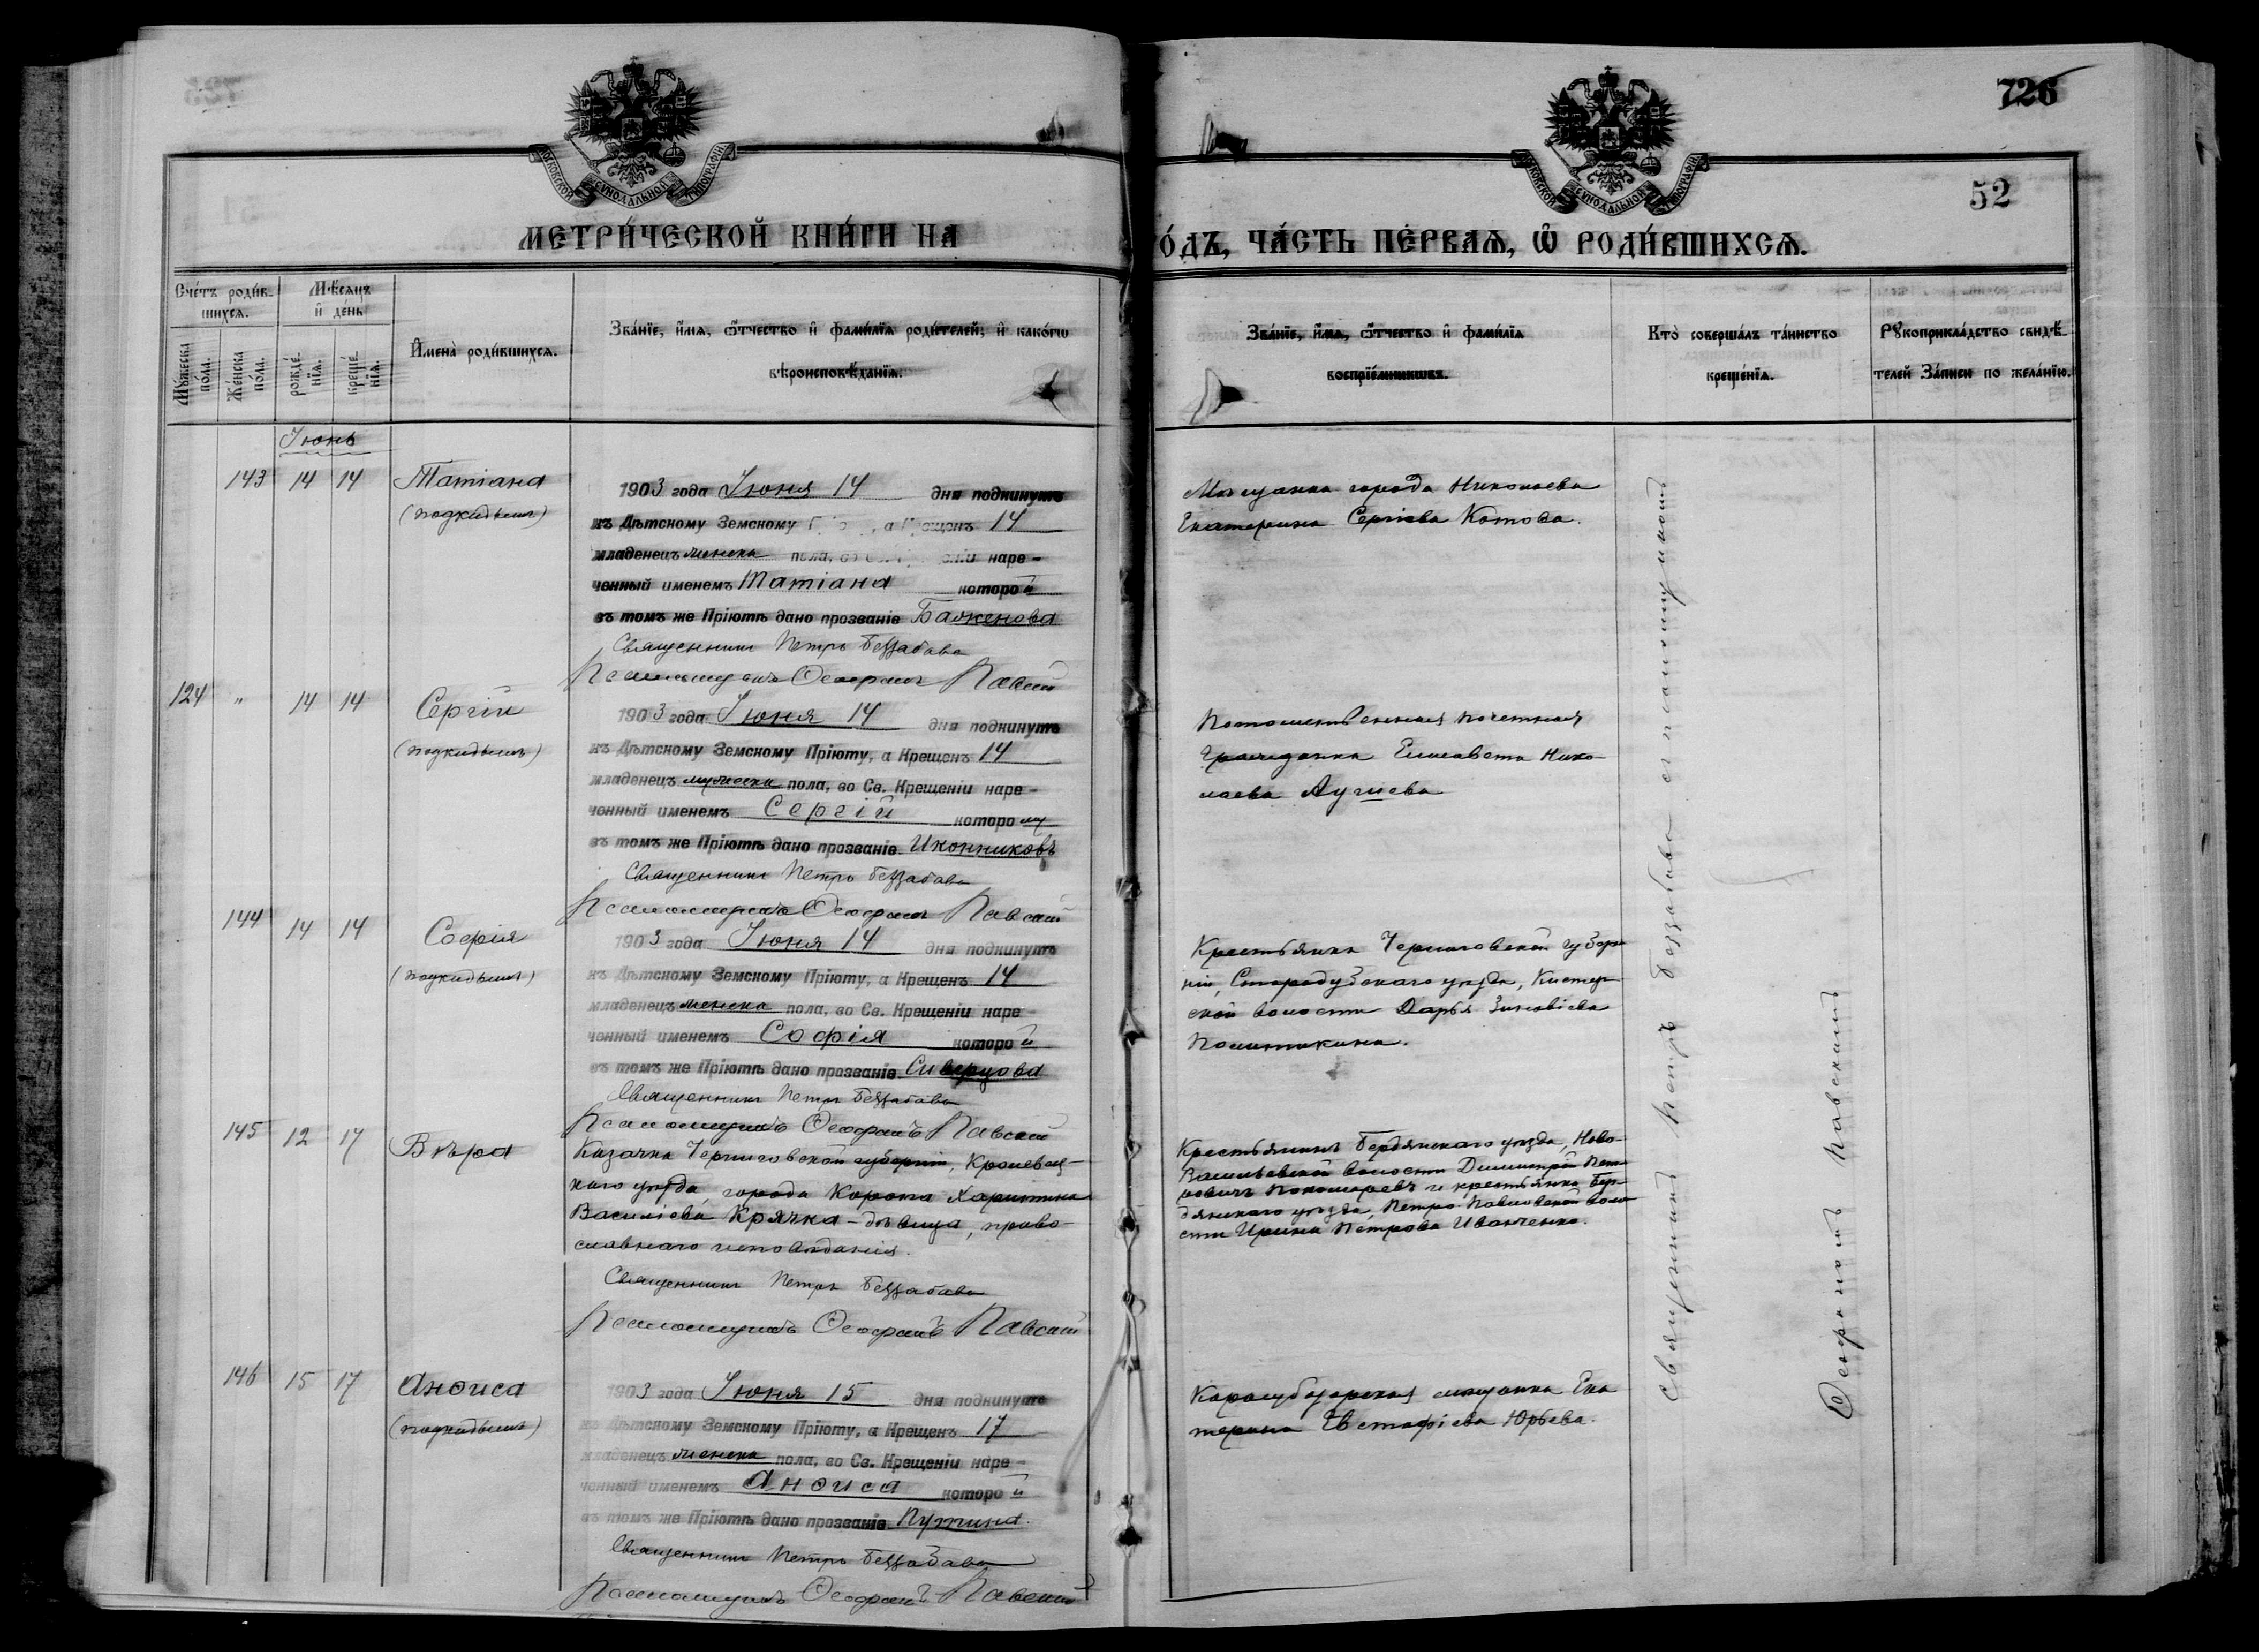 726
52
МОСКОВСКОЙ СѴНОДАЛЬНОЙ ТИПОГРАФІИ
МОСКОВСКОЙ СѴНОДАЛЬНОЙ ТИПОГРАФІИ
МЕТРИ́ЧЕСКОЙ КНИ́ГИ НА
О́ДЪ, ЧА́СТЬ ПЕ́РВАѦ, Ѡ РОДИ́ВШИХСѦ.
Сче́тъ роди́в-
шихсѧ.
Мꙋ́жеска по́ла.
Же́нска по́ла.
Мѣ́сѧцъ
и҆ де́нь
рожде́-
нїѧ.
креще́-
нїѧ.
И҆мена̀ роди́вшихсѧ.
Зва́нїе, и҆́мѧ, ѻ҆́тчество и҆ фами́лїѧ роди́телей, и҆ како́гѡ
вѣроисповѣ́данїѧ.
Зва́нїе, и҆́мѧ, ѻ҆́тчество и҆ фами́лїѧ
воспрїе́мниковъ.
Кто̀ соверша́лъ та́инство
креще́нїѧ.
Рꙋкоприкла́дство свидѣ́-
телей За́писи по жела́нїю.
Іюнь
143 14 14 Татіана
(подкидышъ)
1903 года Іюня 14 дня подкинутъ
къ Дѣтскому Земскому а Крещенъ 14
младенецъ женска пола, наре-
ченный именемъ Татіана которой
въ томъ же Пріютѣ дано прозваніе Баженова
Священникъ Петръ Беззабава
Псаломщикъ Ѳеофанъ Павскій
Мѣщанка города Николаева
Екатерина Сергіева Котова.
124 " 14 14 Сергій
(подкидышъ)
1903 года Іюня 14 дня подкинутъ
къ Дѣтскому Земскому Пріюту, а Крещенъ 14
младенецъ мужеска пола, во Св. Крещеніи наре-
ченный именемъ Сергій которому
въ томъ же Пріютѣ дано прозваніе Иконниковъ
Священникъ Петръ Беззабава
Псаломщикъ Ѳеофанъ Павскій
Потомственная почетная
гражданка Елисавета Нико-
лаева
144 14 14 Софія
(подкидышъ)
1903 года Іюня 14 дня подкинутъ
къ Дѣтскому Земскому Пріюту, а Крещенъ 14
младенецъ женска пола, во Св. Крещеніи наре-
ченный именемъ Софія которой
въ томъ же Пріютѣ дано прозваніе Сиверцова
Священникъ Петръ Беззабава
Псаломщикъ Ѳеофанъ Павскій
Крестьянка Черниговской губер-
ніи, Стародубскаго уѣзда, Кистер-
ской волости Дарья Зиновіева
145 12 17 Вѣра
Казачка Черниговской губерніи, Кролевец-
каго уѣзда, города Коропа Харитина
Василіева Крячка - дѣвица, право-
славнаго исповѣданія.
Священникъ Петръ Беззабава
Псаломщикъ Ѳеофанъ Павскій
Крестьянинъ Бердянскаго уѣзда, Ново-
Васильевской волости Димитрій Пет-
ровичъ Пономаревъ и крестьянка Бер-
дянскаго уѣзда, Петро-Павловской воло-
сти Ирина Петрова Иванченко.
146 15 17 Анѳиса
(подкидышъ)
1903 года Іюня 15 дня подкинутъ
къ Дѣтскому Земскому Пріюту, а Крещенъ 17
младенецъ женска пола, во Св. Крещеніи наре-
ченный именемъ Анѳиса которой
въ томъ же Пріютѣ дано прозваніе
Священникъ Петръ Беззабава
Псаломщикъ Ѳеофанъ Павскій
Карасубазарская мѣщанка Ека
терина Евстафіева Юрьева.
Священникъ Петръ Беззабава съ псаломщикомъ
Ѳеофаномъ Павскимъ